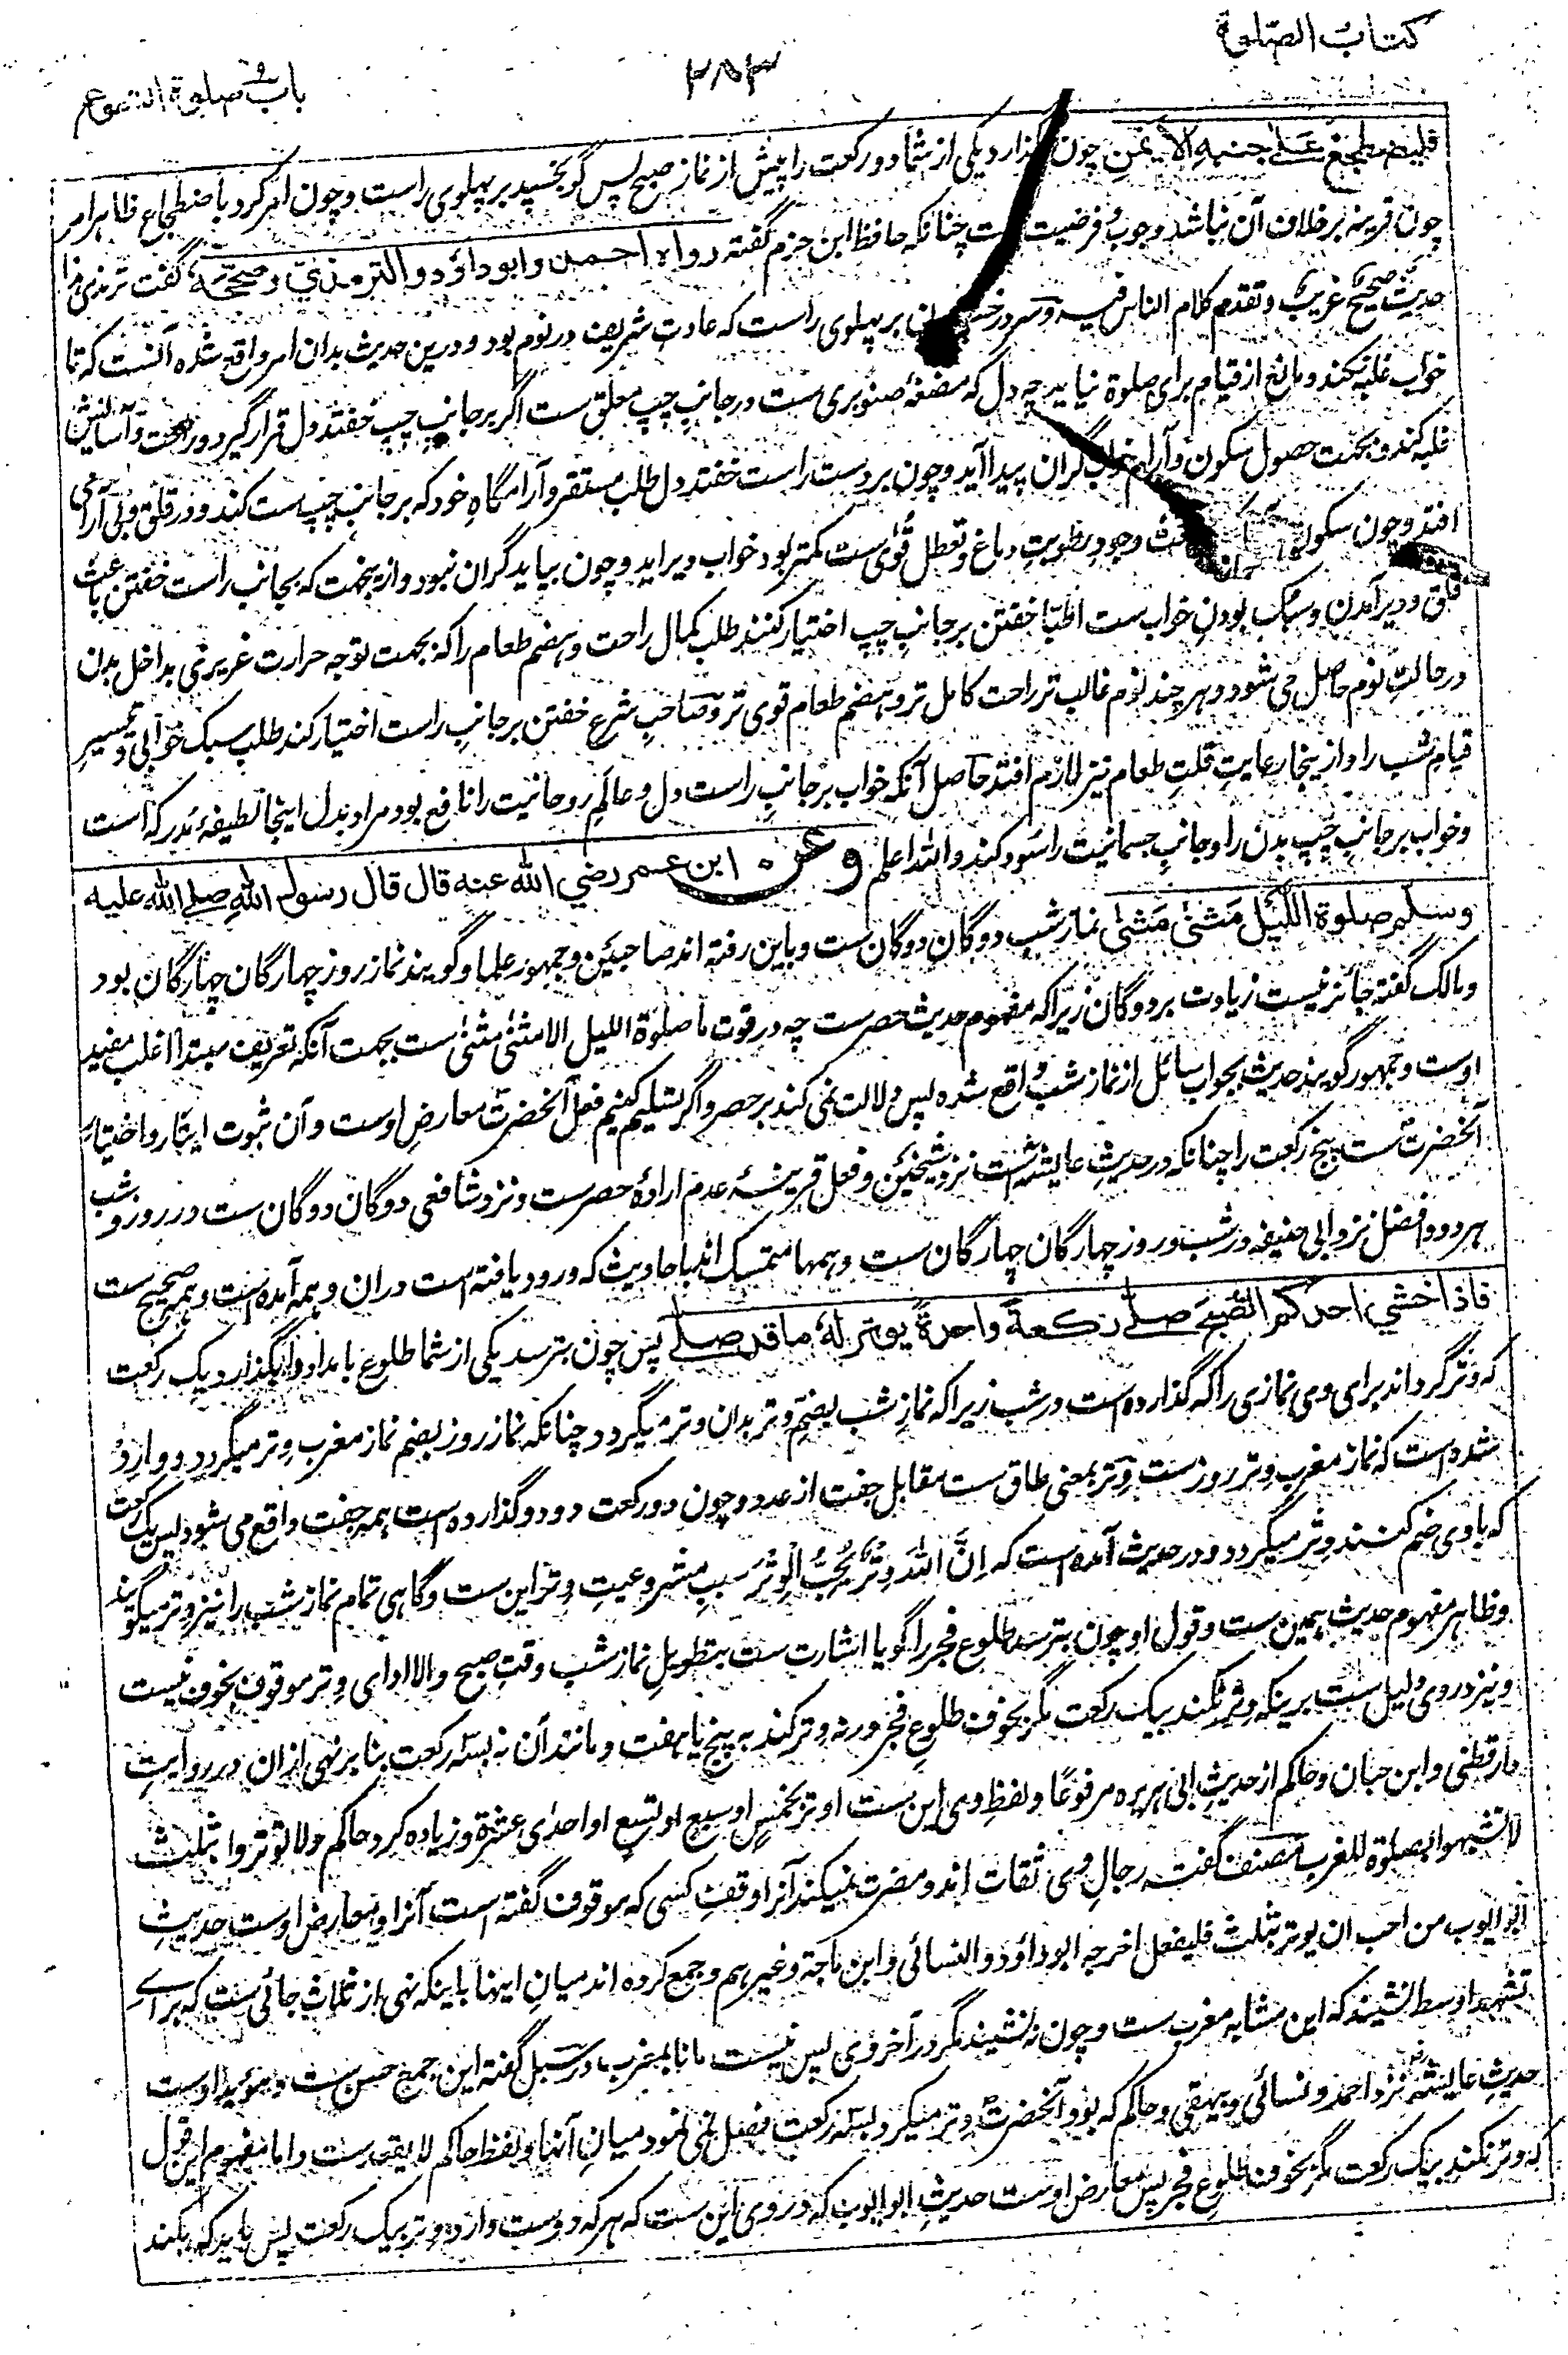 كتاب الصلوة
۳۸۳
باب صلوة التطوع
فليضطجع على جنبه الايمن چون گذارد یکی از شما دو رکعت را پیش از نماز صبح پس گو بخسپد بر پهلوی راست و چون امر کرد باضطجاع ظاهر امر
چون قرینه بر خلاف آن نباشد وجوب فرضیت ست چنانکه حافظ ابن حزم گفته رواه احمد وابوداؤد والترمذي وصححه گفت ترمذی هذا
حدیث صحیح غریب و تقدم کلام الناس فیه و سر در بر پهلوی راست که عادت شریف در نوم بود و درین حدیث بدان امر واقع شده آنست که تا
خواب غلبه نکند و مانع از قیام برای صلوة نیاید چه دل که مضغهٔ صنوبری ست در جانب چپ معلق ست اگر بر جانب چپ خفتند دل قرار گیرد و راحت و آسایش
غلبه کند و بجهت حصول سکون و آرام خواب گران پیدا آید و چون بر دست راست خفتند دل طلب مستقر و آرامگاه خود که بر جانب چپ ست کند و در قلق و بی آرامی
افتد و چون سکون وجود رطوبت دماغ و تعطل قوی ست کمتر بود خواب دیر آید و چون بیاید گران نبود و ازینجهت که بجانب راست خفتن باعث
قلق و دیر آمدن و سبک بودن خواب ست اطبا خفتن بر جانب چپ اختیار کنند طلب کمال راحت و هضم طعام را که بجهت توجه حرارت غریزی بداخل بدن
در حالت نوم حاصل می شود و هر چند نوم غالب تر راحت کامل تر و هضم طعام قوی تر و صاحب شرع خفتن بر جانب راست اختیار کند طلب سبک خوابی و تیسیر
قیام شب را و ازینجا رعایت قلت طعام نیز لازم افتد حاصل آنکه خواب بر جانب راست دل و عالم روحانیت را نافع بود مراد بدل اینجا لطیفهٔ مدرکه است
و خواب بر جانب چپ بدن را و جانب جسمانیت را سود کند والله اعلم وعن ابن عمر رضي الله عنه قال قال رسول الله صلے الله عليه
وسلم صلوة الليل مَثنىٰ مَثنىٰ نماز شب دوگان دوگان ست و باین رفته اند صاحبین و جمهور علما و گویند نماز روز چهارگان چهارگان بود
و مالک گفته جائز نیست زیادت بر دوگان زیرا که مفهوم حدیث حصرست چه در قوت ما صلوة اللیل الا مثنی مثنی ست بجهت آنکه تعریف مبتدا اغلب مفید
اوست و جمهور گویند حدیث بجواب سائل از نماز شب واقع شده پس دلالت نمی کند بر حصر و اگر تسلیم کنیم فعل آنحضرت معارض اوست و آن ثبوت ایتار و اختیار
آنحضرت ست پنج رکعت را چنانکه در حدیث عایشه ست نزد شیخین و فعل قرینهٔ عدم ارادهٔ حصرست و نزد شافعی دوگان دوگان ست در روز و شب
هر دو و افضل نزد ابی حنیفه در شب و روز چهارگان چهارگان ست و همها متمسک اند باحادیث که ورود یافته است دران و همه آمده است و همه صحیح ست
فاذا خشي احدكم الصبح صلے ركعةً واحدةً يوتر له ما قد صلے پس چون بترسد یکی از شما طلوع بامداد را بگذارد یک رکعت
که وتر گرداند برای وی نمازی را که گذارده است در شب زیرا که نماز شب بضم وتر بدان وتر میگردد چنانکه نماز روز بضم نماز مغرب وتر میگردد و وارد
شده است که نماز مغرب وتر روزست و وتر بمعنی طاق ست مقابل جفت از عدد و چون دو رکعت دو دو گذارده است همه جفت واقع می شود پس یک رکعت
که باوی ضم کنند وتر میگردد و در حدیث آمده است که اِنَّ اللهَ وِتْرٌ یُحِبُّ الْوِتْرَ سبب مشروعیت وتر این ست و گاهی تمام نماز شب را نیز وتر میگویند
و ظاهر مفهوم حدیث همین ست و قول او چون بترسد طلوع فجر را گویا اشارت ست بتطویل نماز شب وقت صبح والا ادای وتر موقوف بخوف نیست
و نیز در وی دلیل ست برینکه وتر نکند بیک رکعت مگر بخوف طلوع فجر ورنه وتر کند به پنج یا هفت و مانند آن نه بسه رکعت بنا بر نهی ازان در روایت
دارقطنی و ابن حبان و حاکم از حدیث ابی هریره مرفوعًا و لفظ وی این ست اوتر بخمس او سبع او تسع او احدی عشرة و زیاده کرد حاکم ولا توتروا بثلث
لا تشبهوا بصلوة المغرب مصنف گفته رجال وی ثقات اند و مضرت نمیکند آنرا وقف کسی که موقوف گفته است آنرا و معارض اوست حدیث
ابو ایوب من احب ان یوتر بثلث فلیفعل اخرجه ابوداؤد والنسائی وابن ماجة وغیرهم و جمع کرده اند میان اینها باینکه نهی از ثلاث جائی ست که برای
تشهد اوسط نشیند که این مشابه مغرب ست و چون نه نشیند مگر در آخر وی پس نیست مانا بمغرب و در سبل گفته این جمع حسن ست و مؤید اوست
حدیث عایشه نزد احمد و نسائی و بیهقی و حاکم که بود آنحضرت وتر میکرد بسه رکعت فصل نمی نمود میان آنها و لفظ حاکم لا یقعد ست و اما مفهوم این قول
که وتر نکند بیک رکعت مگر بخوف طلوع فجر پس معارض اوست حدیث ابو ایوب که در وی این ست که هر که دوست دارد وتر بیک رکعت پس باید که بکند